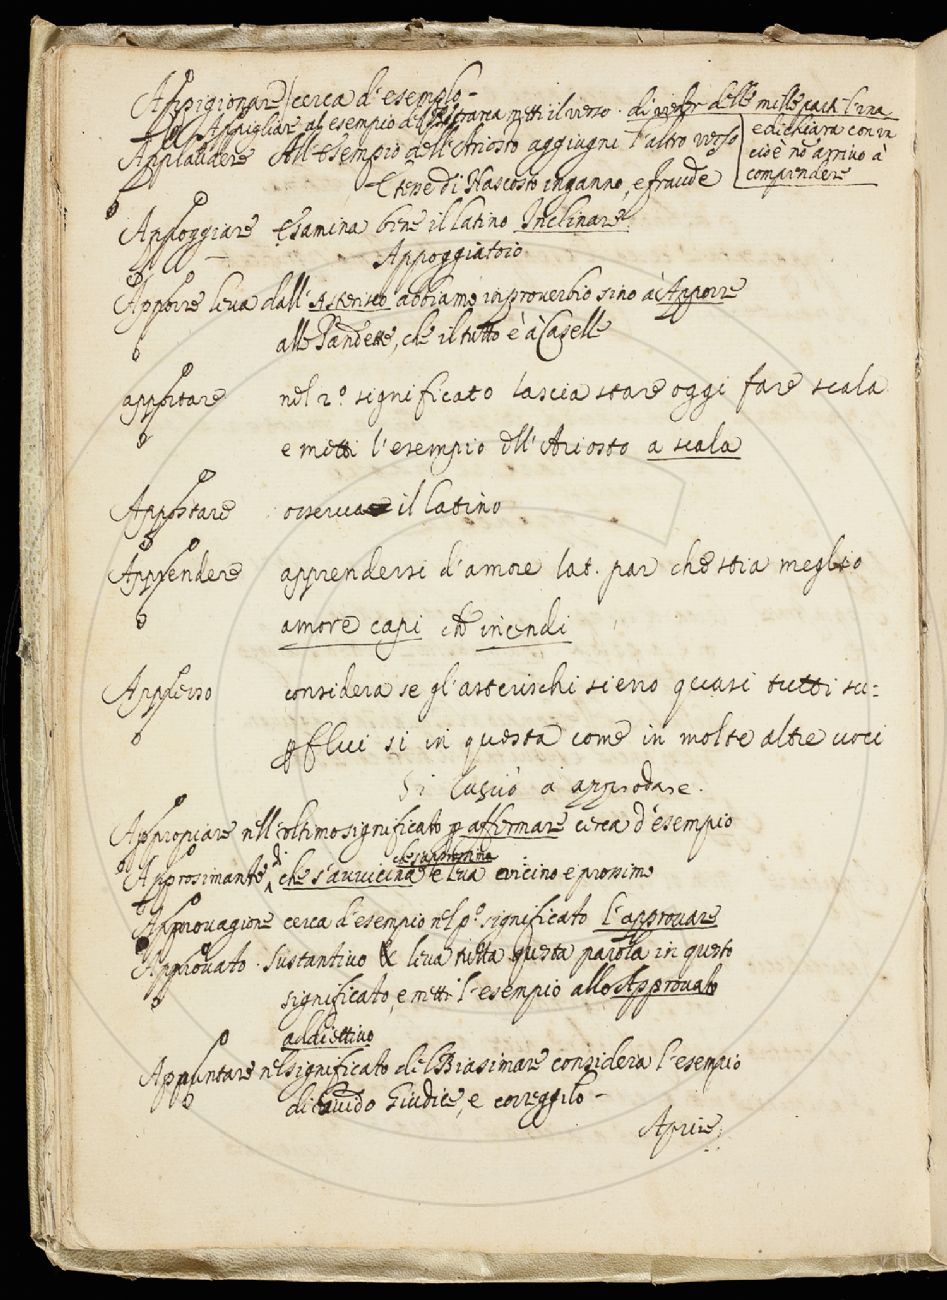 Appigionare cerca d'esempio -
Appigliare al esempio del Petrarca metti il verso. di veder delle mille parti l'una
Applaudere All'esempio dell'Ariosto aggiugni l'altro verso
E tesse di Nascosto inganno, e fraude
e dichiara con in
cioè nõ arrivo à
comprendere
Appoggiare Esamina bene il latino Inclinare.
Appoggiatoio
Apporre leva dall'Asterisco abbiamo in proverbio sino à Apporre
alle Pandette, che il tutto è à Caselle
apportare nel 2º significato lascia stare oggi fare scala
e metti l'esempio dell'Ariosto a scala
Appostare osservare il latino
Apprendere apprendersi d'amore lat. par che stia meglio
amore capi che incendi
Appresso considera se gl'asterischi sieno quasi tutti su=
perflui si in questa come in molte altre voci
Si lasciò à approdare.
Appropiare nell'ultimo significato p affermare cerca d'esempio
Approsimante, di che s'avvicina e leva vicino e prossimo
Approvagione cerca d'esempio nel pº significato l'approvare
Approvato. sustantivo & leva tutta questa parola in questo
significato, e metti l'esempio allo Approvato
addiettivo
Appuntare nel significato del Biasimare considera l'esempio
di Guido Giudice, e correggilo -
Aprire.